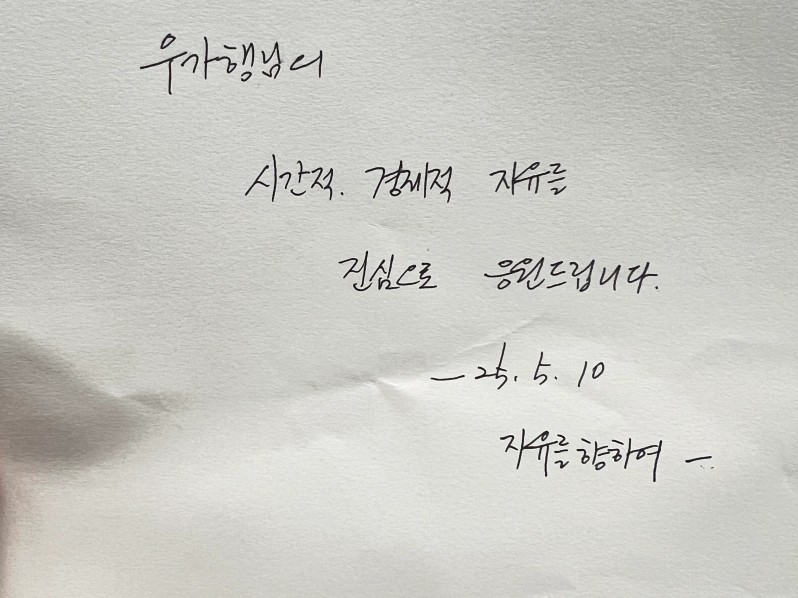 우가행님의
시간적. 경제적 자유를
진심으로 응원드립니다.
- 25. 5. 10
자유를 향하여 -